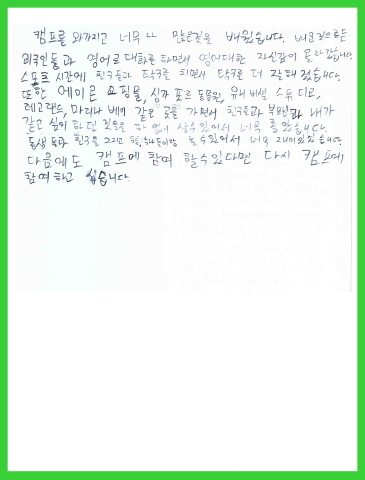 캠프를 와가지고 너무나 많은것을 배웠습니다. 배운것으로는
외국인들과 영어로 대화를 하면서 영어대한 자신감이 올라갔습니다.
스포츠 시간에 친구들과 탁구를 치면서 탁구를 더 잘해졌습니다.
또한 에이온 쇼핑몰, 싱가포르 동물원, 유니버셜 스튜디오,
레고랜드, 마리나 베이 같은 곳을 가면서 친구들과 부모님과 내가
같고 싶어 하던 것들을 살수있어서 너무 좋았습니다.
동생들과 친구들 그리고 형, 누나들이랑 놀수있어서 너무 재미있었습니다.
다음에도 캠프에 참여 할수있다면 다시 캠프에
참여하고 싶습니다.